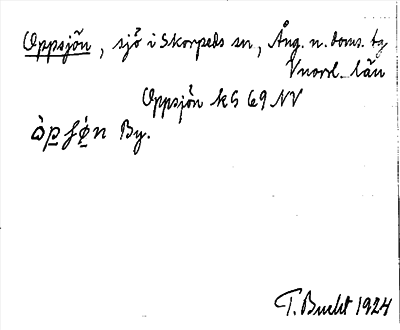 Oppsjön, sjö i Skorpeds sn, Ång. n. doms. tg
Vnorrl. län
Oppsjön kS 69 NV
òp̲ʃǿ̲n By.
T. Bucht 1924